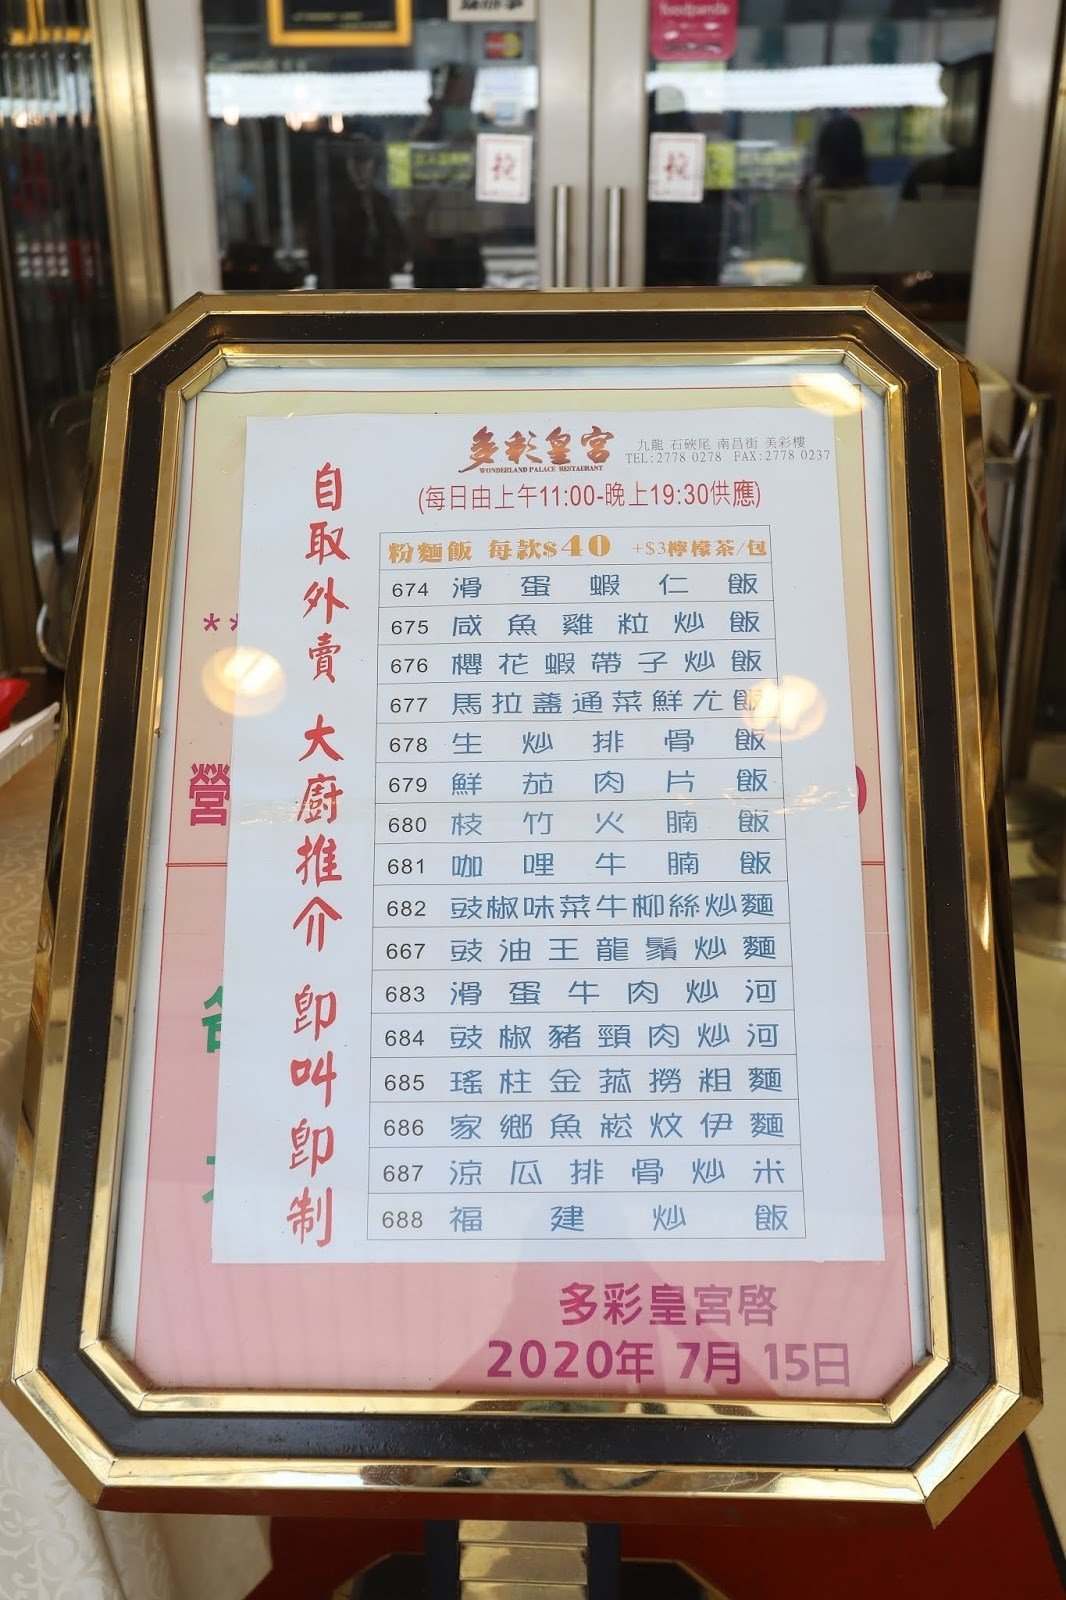 foodpanda
拉
拉
多彩皇宮
WONDERLAND PALACE RESTAURANT
九龍 石硤尾 南昌街 美彩樓
TEL:2778 0278 FAX:2778 0237
(每日由上午11:00-晚上19:30供應)
自取外賣 大廚推介 即叫即制
粉麵飯 每款$40 +$3檸檬茶/包
674 滑蛋蝦仁飯
675 咸魚雞粒炒飯
676 櫻花蝦帶子炒飯
677 馬拉盞通菜鮮尤飯
678 生炒排骨飯
679 鮮茄肉片飯
680 枝竹火腩飯
681 咖哩牛腩飯
682 豉椒味菜牛柳絲炒麵
667 豉油王龍鬚炒麵
683 滑蛋牛肉炒河
684 豉椒豬頸肉炒河
685 瑤柱金菰撈粗麵
686 家鄉魚崧炆伊麵
687 涼瓜排骨炒米
688 福建炒飯
**
營
多彩皇宮啓
2020年 7月 15日